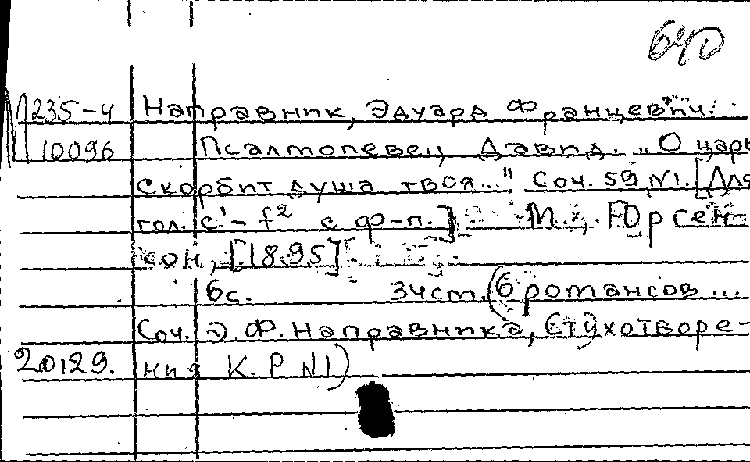 640
П235-4 Направник, Эдуард Францевич.
10096 Псалтопевец Давид. „О царь
скорбит душа твоя..." Соч. 59, N1. [Для
гол. c¹- f² с ф-п.] М., Юрген-
сон, [1895]
6с. 34см. (6 романсов ...
Соч. Э.Ф. Направника, Стихотворе-
20129. ния К.Р N1)